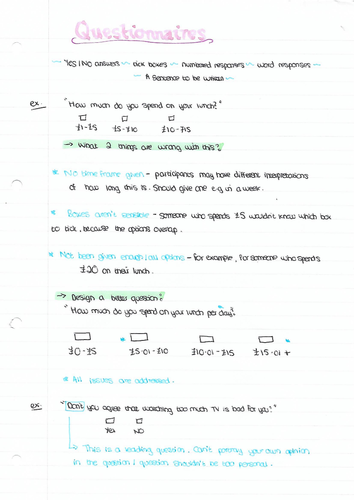 Questionnaires
~ YES/NO answers ~ tick boxes ~ numbered responses ~ word responses ~
~ A sentence to be written ~
ex. "How much do you spend on your lunch?"
£1-£5 £5-£10 £10-£15
→ What 2 things are wrong with this?
* No time frame given - participants may have different interpretations
of how long this is. Should give one e.g in a week.
* Boxes aren't sensible - someone who spends £5 wouldn't know which box
to tick, because the options overlap.
* Not been given enough options - for example, for someone who spends
£20 on their lunch.
→ Design a better question?
"How much do you spend on your lunch per day?"
£0-£5 £5.01-£10 £10.01-£15 £15.01+
* All issues are addressed.
ex. "Don't you agree that watching too much TV is bad for you?"
Yes No
→ This is a leading question. Can't portray your own opinion
in the question / question shouldn't be too personal.